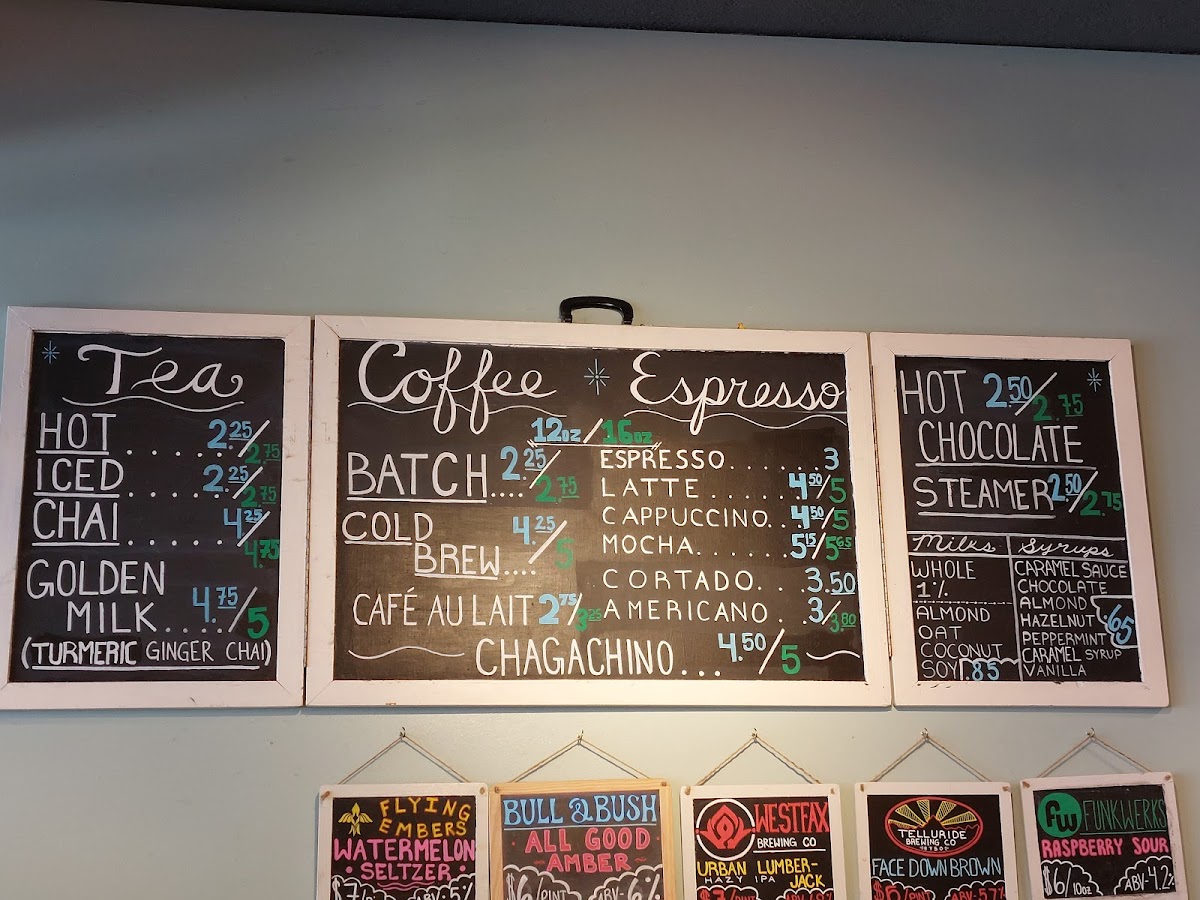 Tea
HOT ...... 2.25/2.75
ICED ...... 2.25/2.75
CHAI ...... 4.25/4.75
GOLDEN
MILK .... 4.75/5
(TURMERIC GINGER CHAI)
Coffee Espresso
12oz/16oz
BATCH .... 2.25/2.75
COLD
BREW .... 4.25/5
CAFÉ AU LAIT 2.75/3.25
ESPRESSO ....... 3
LATTE ...... 4.50/5
CAPPUCCINO .. 4.50/5
MOCHA ...... 5.15/5.65
CORTADO ... 3.50
AMERICANO .. 3/3.80
CHAGACHINO ... 4.50/5
HOT 2.50/2.75
CHOCOLATE
STEAMER 2.50/2.75
Milks
WHOLE
1%
ALMOND
OAT
COCONUT
SOY .85
Syrups
CARAMEL SAUCE
CHOCOLATE
ALMOND
HAZELNUT .65
PEPPERMINT
CARAMEL SYRUP
VANILLA
FLYING
EMBERS
WATERMELON
SELTZER
$7/PINT ABV-5%
BULL & BUSH
ALL GOOD
AMBER
$6/PINT ABV-6%
WESTFAX
BREWING CO
URBAN LUMBER-
HAZY IPA JACK
$7/PINT
TELLURIDE
BREWING CO
FACE DOWN BROWN
$6/PINT ABV-5.7%
fw FUNKWERKS
RASPBERRY SOUR
$6/10oz ABV-4.2%